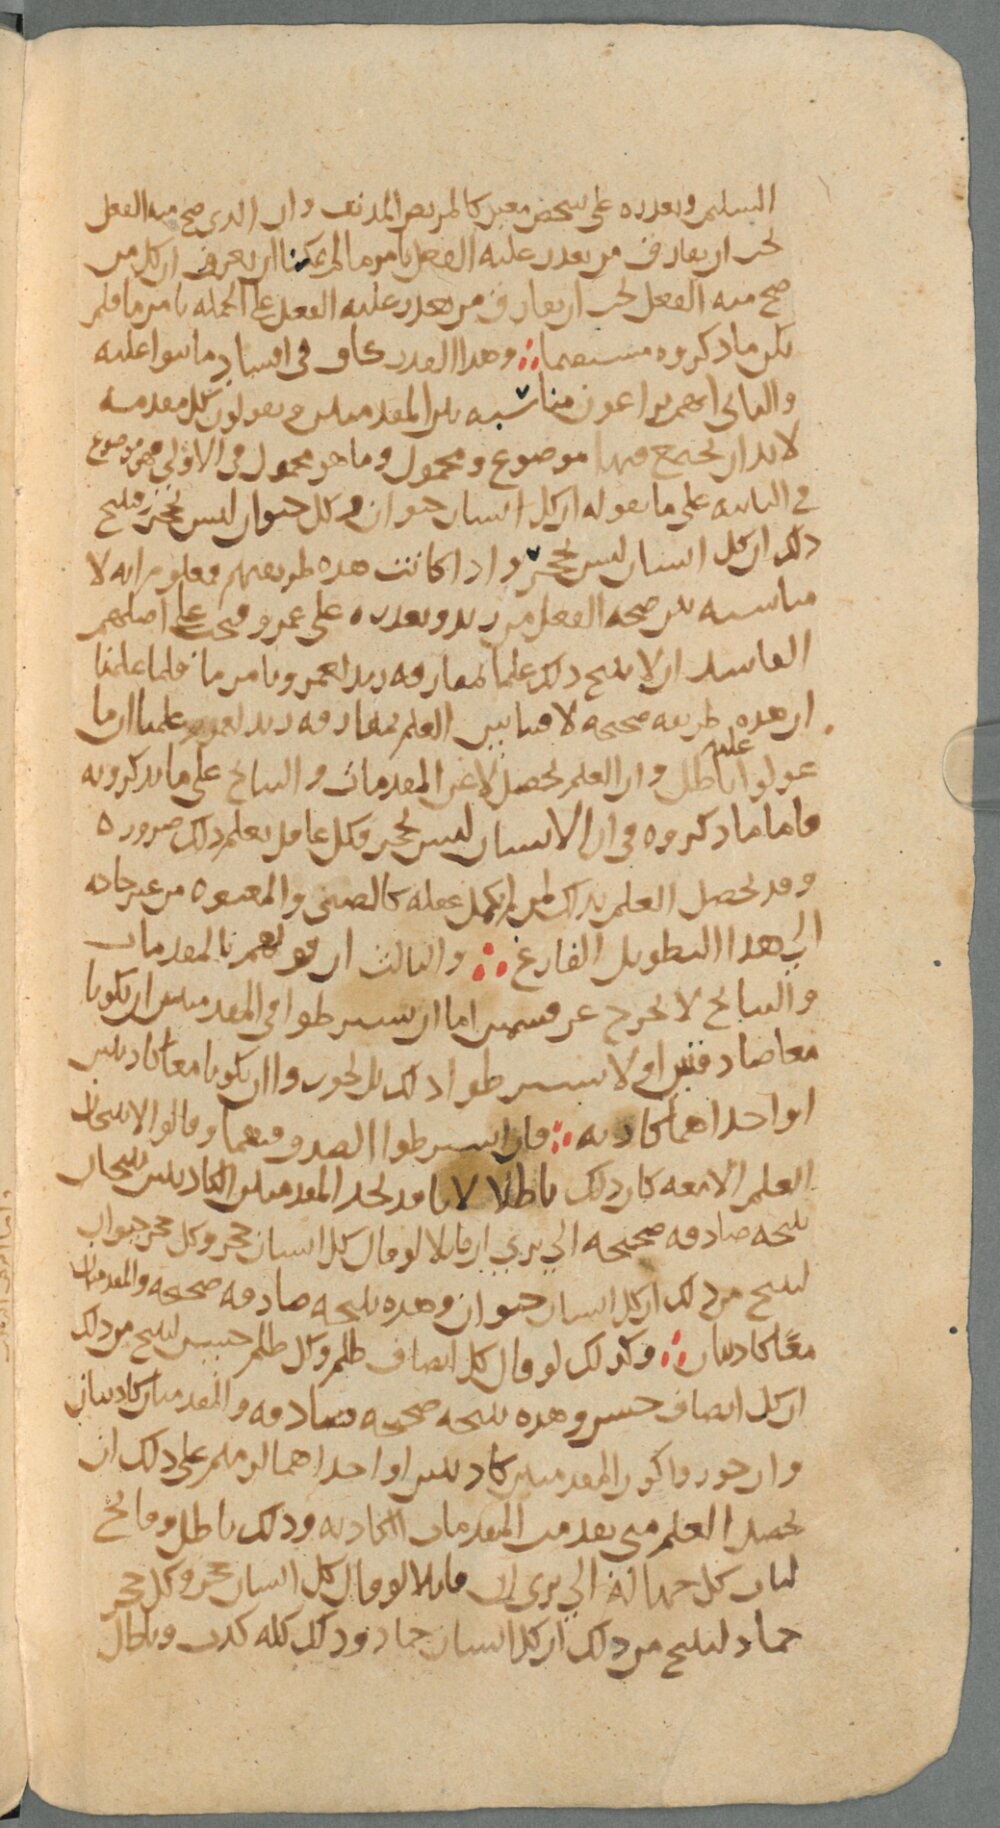 السليم وتعذره على شخص معين كالمريض المدنف وان الذي صح منه الفعل
يجب ان يفارق من تعذر عليه الفعل بامر ما لم يمكنا ان نعرف ان كل من
صح منه الفعل يجب ان يفارق من تعذر عليه الفعل على الجملة بامر ما فلم
يكن ما ذكروه مستقيما وهذا القدر كاف في افساد ما بنوا عليه
والثاني انهم يراعون مناسبة بين المقدمتين ويقولون كل مقدمة
لا بد ان يجتمع فيها موضوع ومحمول وما هو محمول في الاولى فهو موضوع
في الثانية على ما نقوله ان كل انسان حيوان وكل حيوان ليس بحجر فينتج
ذلك ان كل انسان ليس بحجر واذا كانت هذه طريقتهم فمعلوم انه لا
مناسبة بين صحة الفعل من زيد وتعذره على عمرو فيجب على اصلهم
الفاسد ان لا ينتج ذلك علما بمفارقة زيد لعمرو بامر ما فلما علمنا
ان هذه طريقة صحيحة لا العلم بمفارقة زيد لعمرو علمنا ان ما
عولوا عليه باطل وان العلم يحصل لا عن المقدمات والنتائج على ما يذكرونه
فاما ما ذكروه في ان الانسان ليس بحجر فكل عاقل يعلم ذلك ضرورة
وقد يحصل العلم بذلك لمن لم يكمل عقله كالصبي والمعتوه من غير حاجة
الى هذا التطويل الفارغ والثالث ان قولهم بالمقدمات
والنتائج لا يخرج عن قسمين اما ان يشترطوا في المقدمتين ان يكونا
معا صادقتين او لا يشترطوا ذلك بل يجوزوا ان يكونا معا كاذبتين
او احداهما كاذبة فان اشترطوا الصدق فيهما وقالوا لا ينتجان
العلم الا معه كان ذلك باطلا لانا قد نجد المقدمتين الكاذبتين ينتجان
نتيجة صادقة صحيحة الى يرى ان قايلا لو قال كل انسان حجر وكل حجر حيوان
لينتج من ذلك ان كل انسان حيوان وهذه نتيجة صادقة صحيحة والمقدمتان
معا كاذبتان وكذلك لو قال كل انصاف ظلم وكل ظلم حسن لينتج من ذلك
ان كل انصاف حسن وهذه نتيجة صحيحة صادقة والمقدمتان كاذبتان
وان جوزوا كون المقدمتين كاذبتين او احداهما لزمهم على ذلك ان
يحصل العلم متى تقدمت المقدمات الكاذبة وذلك باطل وفاتح
لباب كل جهالة الى يرى ان قايلا لو قال كل انسان حجر وكل حجر
جماد لينتج من ذلك ان كل انسان جماد وذلك كله كذب وباطل